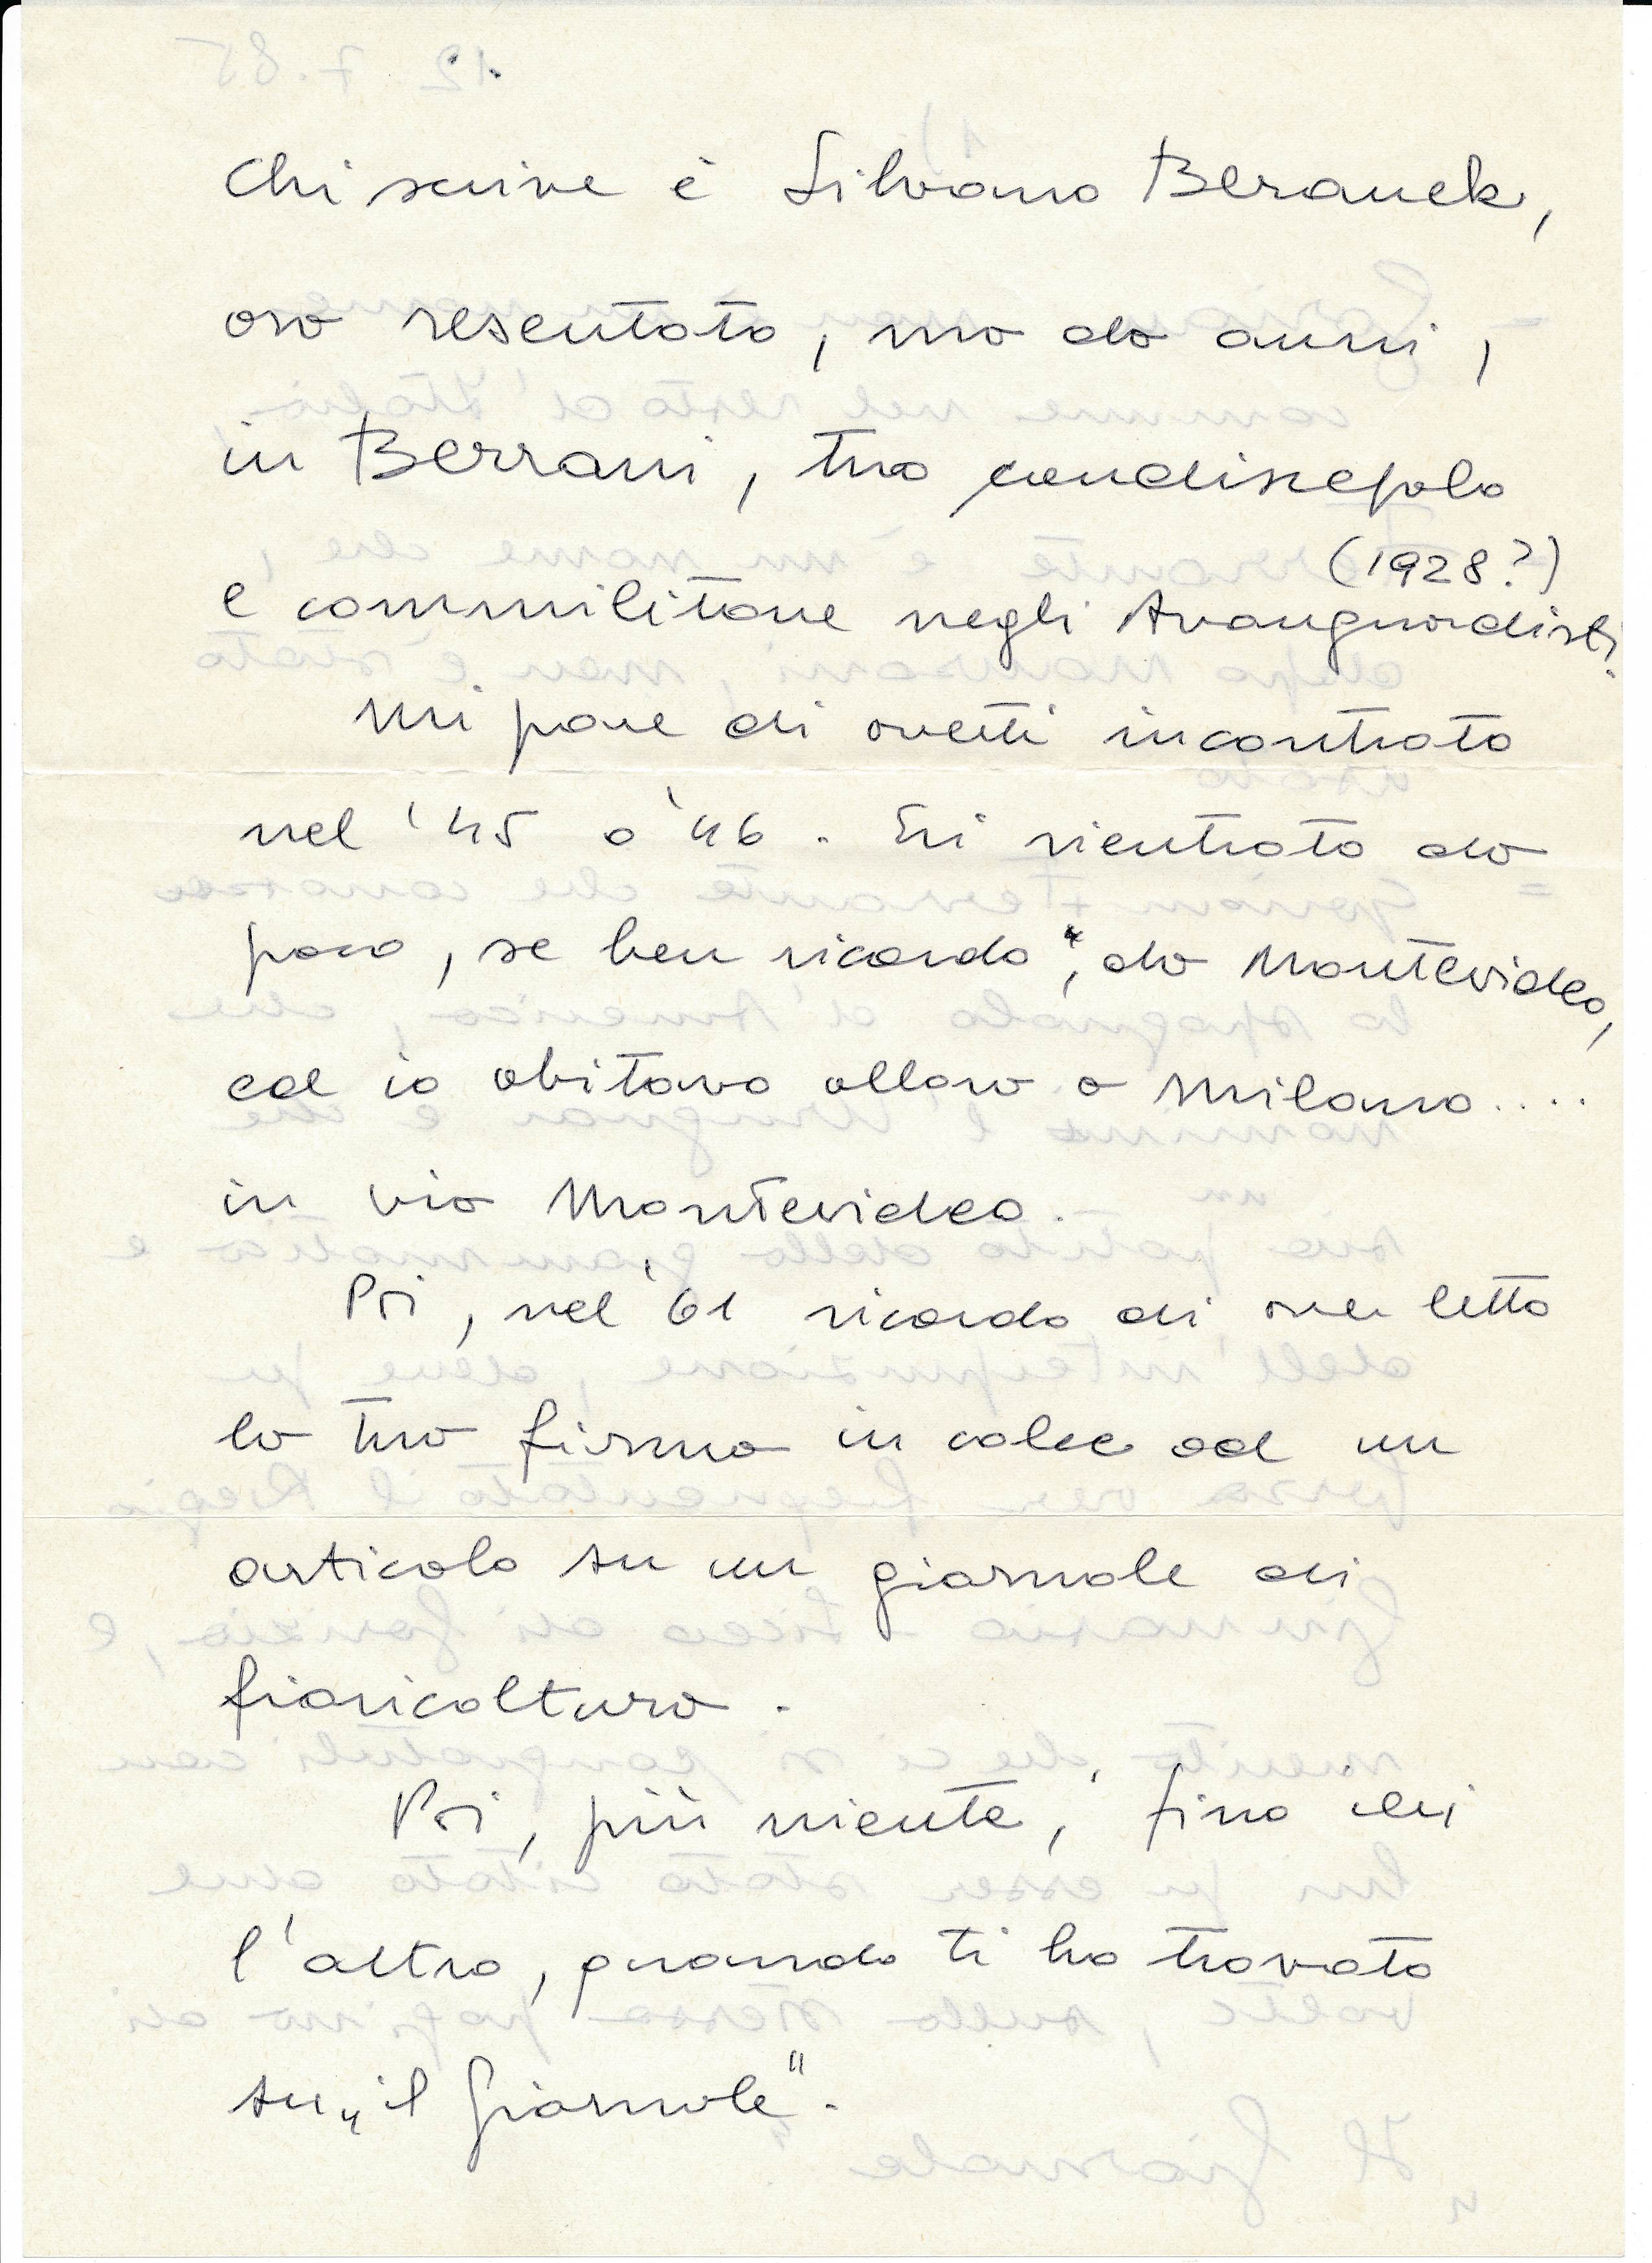 Chi scrive è Silvano Beranek,
ora resentato, ma da anni,
in Berrani, tuo condiscepolo
(1928?)
e commilitone negli Avanguardisti.
Mi pare di averti incontrato
nel '45 o '46. Eri rientrato da
poco, se ben ricordo, da Montevideo,
ed io abitavo allora a Milano....
in via Montevideo.
Poi, nel '61 ricordo di aver letto
la tua firma in calce ad un
articolo su un giornale di
fioricoltura.
Poi, più niente, fino ieri
l'altro, quando ti ho trovato
su „il Giornale".